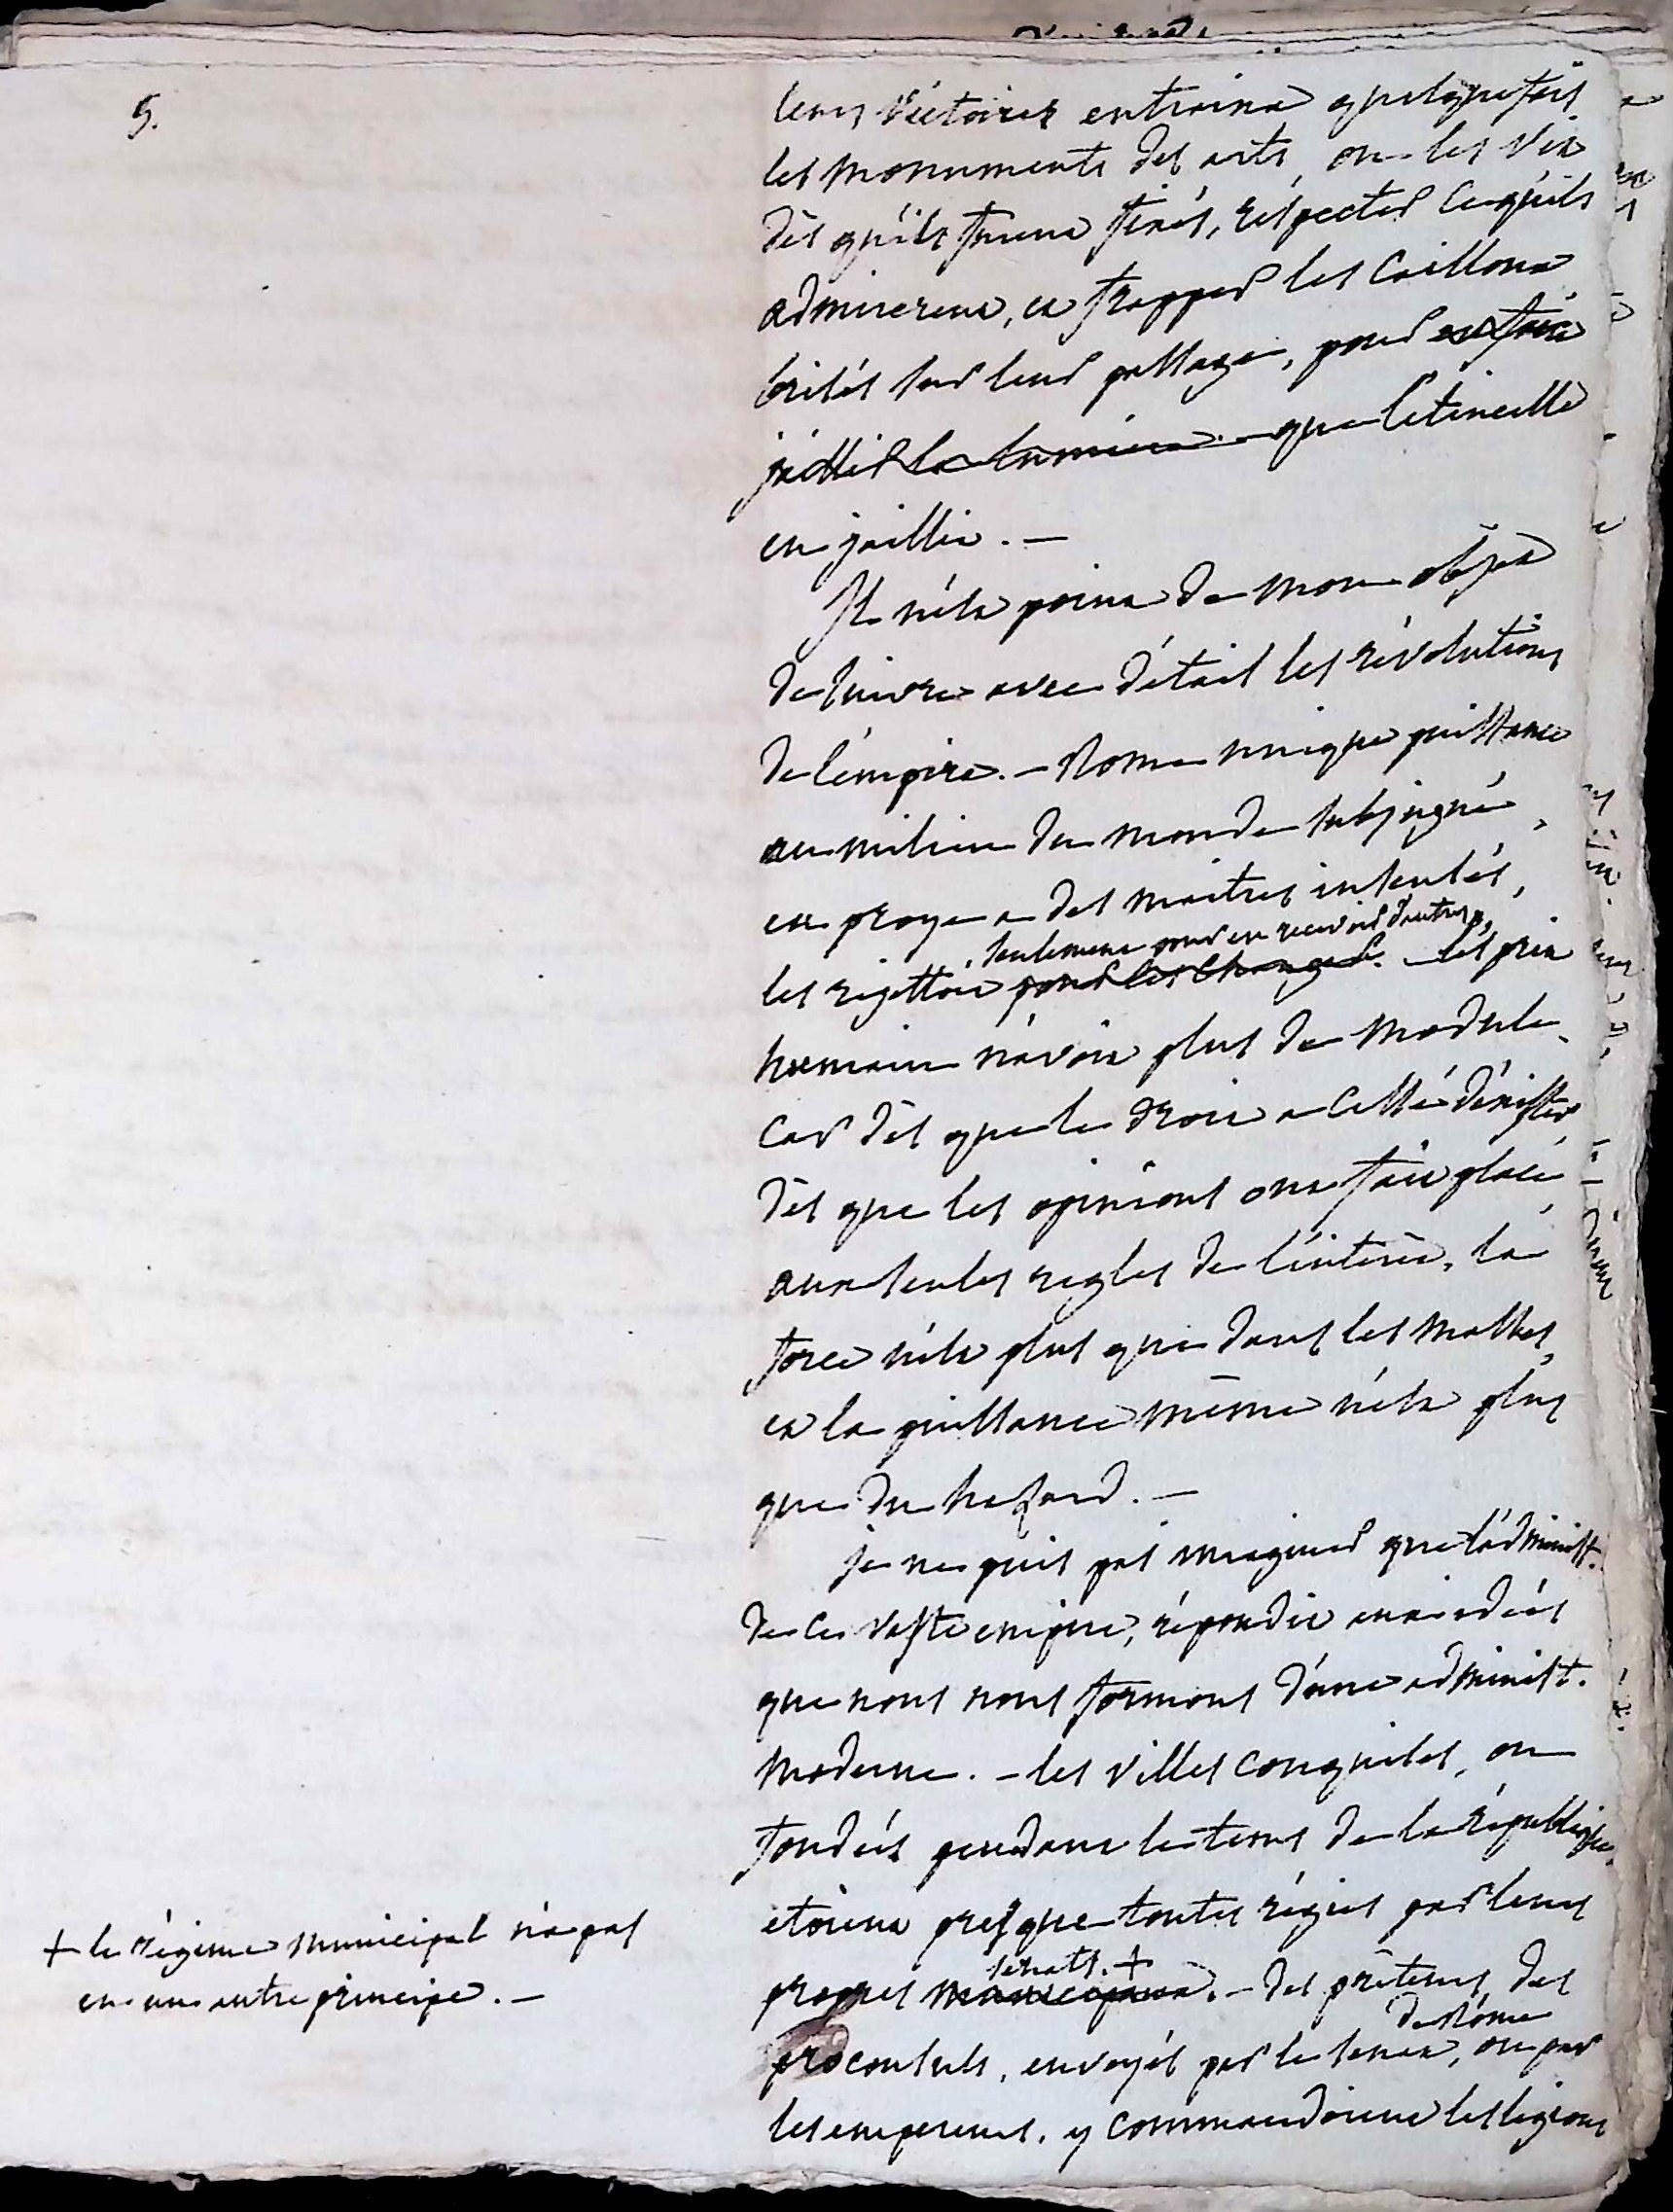 5.
leurs victoires entraina quelquefois
les monuments des arts, on les vit
dès qu'ils furent fixés, respecter ce qu'ils
admirerent, et frapper les caillous
brisés sur leur passage, pour en faire
jaillir la lumiere. que l'étincelle
en jaillit. —
Il n'est point de mon objet
de suivre avec détail les révolutions
de l'émpire. — Rome unique puissance
au milieu du monde subjugué,
en proye a des maitres insensés,
, seulement pour en recevoir d'autres,
les rejettoit pour les changer. — l'esprit
humain n'avoit plus de module.
car dès que le droit a cessé d'éxister
dès que les opinions ont fait place
aux seules regles de l'intérêt, la
force n'est plus que dans les masses,
et la puissance même n'est plus
que du hasard. —
je ne puis pas imaginer que l'administ.
de ce vaste empire, répondit aux idées
que nous nous formons d'une administ.
moderne. — les villes conquises, ou
fondées pendant le tems de la république,
etoient presque toutes régies par leurs
senats. +
propres municipaux. — des préteurs, des
de Rome
proconsuls, envoyés par le senat, ou par
les empereurs, y commandoient les légions
+ le régime municipal n'a pas
eu un autre principe. —